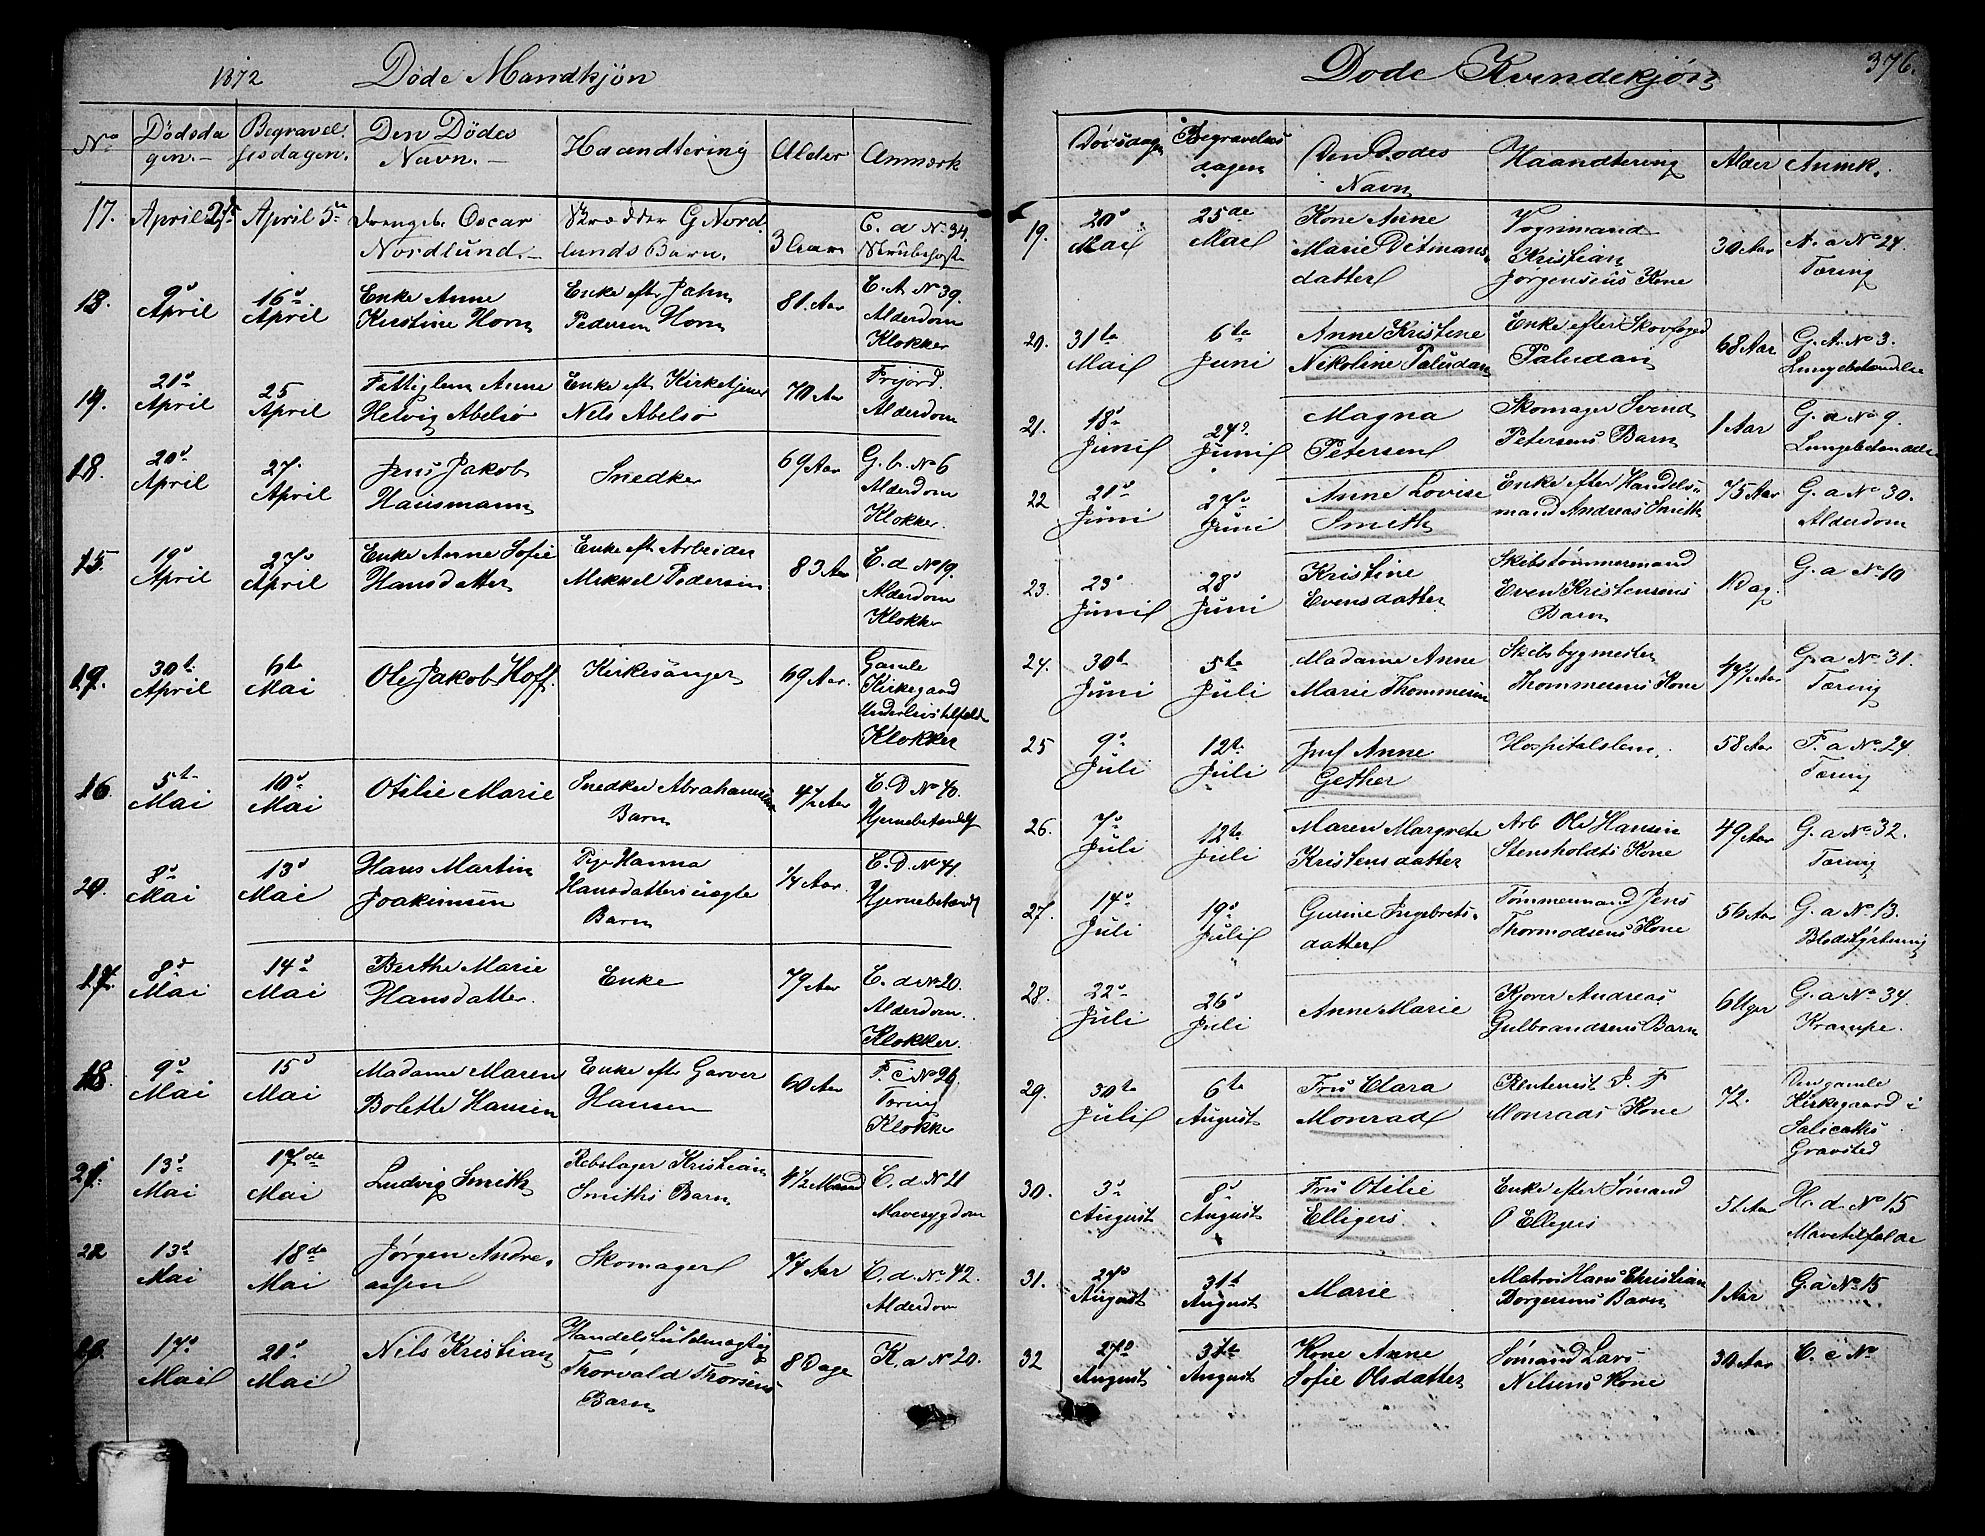 1872 Døde Mandkjøn
No Dødsdagen.- Begravelsesdagen. Den Dødes Navn.- Haandtering Alder Anmærk
17. April 2de April 5te Drengeb. Oscar Nordlund.- Skrædder G Nordlunds Barn. 3 1/4 aar C. d No 34. Strubehoste
18. 9d April 16d April Enke Anne Kirstine Horn Enke eft. Jahn Pedersen Horn 81 Aar C. A. No 39. Alderdom Klokker
19. 21d April 25 April Fattiglem Anne Helvig Abelsø Enke eft Kirketjener Nels Abelsø 70 Aar Frijord. Alderdom
18. 20d April 27. April Jens Jakob Hausmann Snedker 69 Aar G. b. No 6 Alderdom Klokker.
15. 19d April 27d April Enke Anne Sofie Hansdatter Enke eft Arbeider Mikkel Pedersen 83 Aar C. d No 19. Alderdom Klokker
19. 30t. April 6te Mai Ole Jakob Hoff. Kirkesanger 69 Aar. Gamle Kirkegaard Underlivstilfælde Klokker
16. 5te Mai 10d Mai Otilie Marie Snedker Abrahamsens Barn 4 1/2 Aar C. D No 40. Hjernebetændelse
20. 8d Mai 13d Mai Hans Martin Joakimsen Pige Hanna Hansdatters uægte Barn 1/4 Aar. C. D. No 41. Hjernebetændl
17. 8d Mai 14d Mai Berthe Marie Hansdatter. Enke 79 Aar C. d No 20. Alderdom. Klokker.
18. 9d Mai 15d Mai Madame Maren Bolette Hansen Enke eft Garver Hansen 60 Aar F. c No 26. Tæring Klokker
21. 13d Mai 17de Mai Ludvig Smith Rebslager Kristian Smiths Barn 4 1/2 Maaned C. d No 21 Mavesygdom
22 13d Mai 18de Mai Jørgen Andreassen Skomager 74 Aar C. d. No 42. Alderdom
17d Mai 21d Mai Nils Kristian Handelsfuldmægtig Thorvald Thorsens Barn 8 Dage K. a No 20.
Døde Kvindekjøn 376.
Dødsdagen Begravelsesdagen Den Dødes Navn Haandtering Alder Anmk.
19. 20d Mai 25de Mai Kone Anne Marie Ditmansdatter Vognmand Kristian Jørgensens Kone 30 Aar A. a No 24. Tæring
20. 31te Mai 6te Juni Anne Kristene Nikoline Paludan Enke efter Skovfoged Paludan 68 Aar G. A. No 3. Lungebetændelse
21. 18d Juni 24d Juni Magna Petersen Skomager Svend Petersens Barn 1 Aar G. a No 9. Lungebetændelse
22 21d Juni 27d Juni Anne Lovise Smith Enke efter Handelsmand Andreas Smith 75 Aar G. a No 30. Alderdom
23. 23d Juni 28d Juni Kristine Evensdatter Skibstømmermand Even Kristensens Barn 1 Dag. G. a No 10
24. 30t Juni 5te Juli Madame Anne Marie Thommesen Skibsbygmester Thommesens Kone 47 1/2 Aar G. a No 31. Tæring
25 9d Juli 12te Juli Jmf Anne Gether Hospitalslem. 58 Aar F. a No 24. Tæring
26. 7d Juli 12te Juli Maren Margrete Kristensdatter Arb Ole Hansen Stensholdts Kone 49 Aar G. a No 32. Tæring
27. 14d Juli 19d Juli Gurine Ingebretsdatter Tømmermand Jens Thormodsens Kone 56 Aar G. a No 13. Blodstyrtning
28. 22d Juli 26d Juli Anne Marie Kjører Andreas Gulbrandsens Barn 6 Uger G. a No 34. Krampe.
29. 30te Juli 6te August Fru Clara Monrad Rentenist P. F Monrads Kone 72. Den gamle Kirkegaard i Salicaths Gravsted
30. 3d August 8d August Fru Otilie Elligers Enke efter Sømand O Elligers 51 Aar H. d No 15 Mavetilfælde
31. 27d August 31t August Marie Matros Hans Christian Borgersens Barn 1 Aar G. a No 15
32 27d August 31te August Kone Anne Sofie Olsdatter Sømand Lars Nilsens Kone 30 Aar C. c No